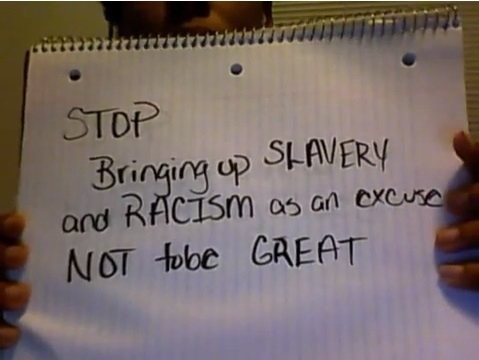 STOP
Bringing up SLAVERY
and RACISM as an excuse
NOT tobe GREAT